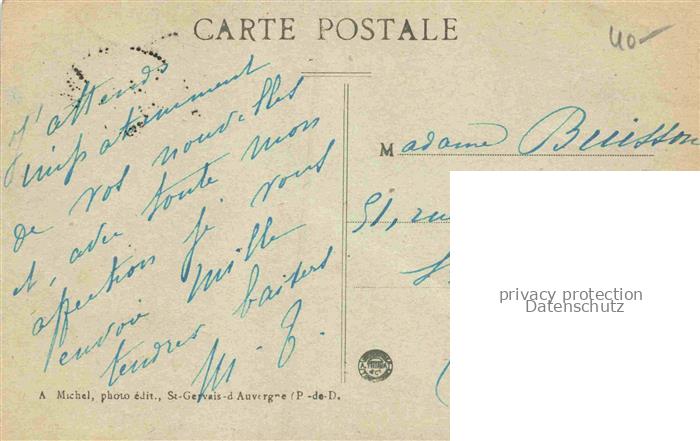 CARTE POSTALE
40-
J'attends
impatiemment
de vos nouvelles
et, avec toute mon
affection je vous
envoie mille
tendres baisers
M. J.
Madame Buisson
51, rue
privacy protection
Datenschutz
A Michel, photo édit., St-Gervais-d'Auvergne (P-de-D.